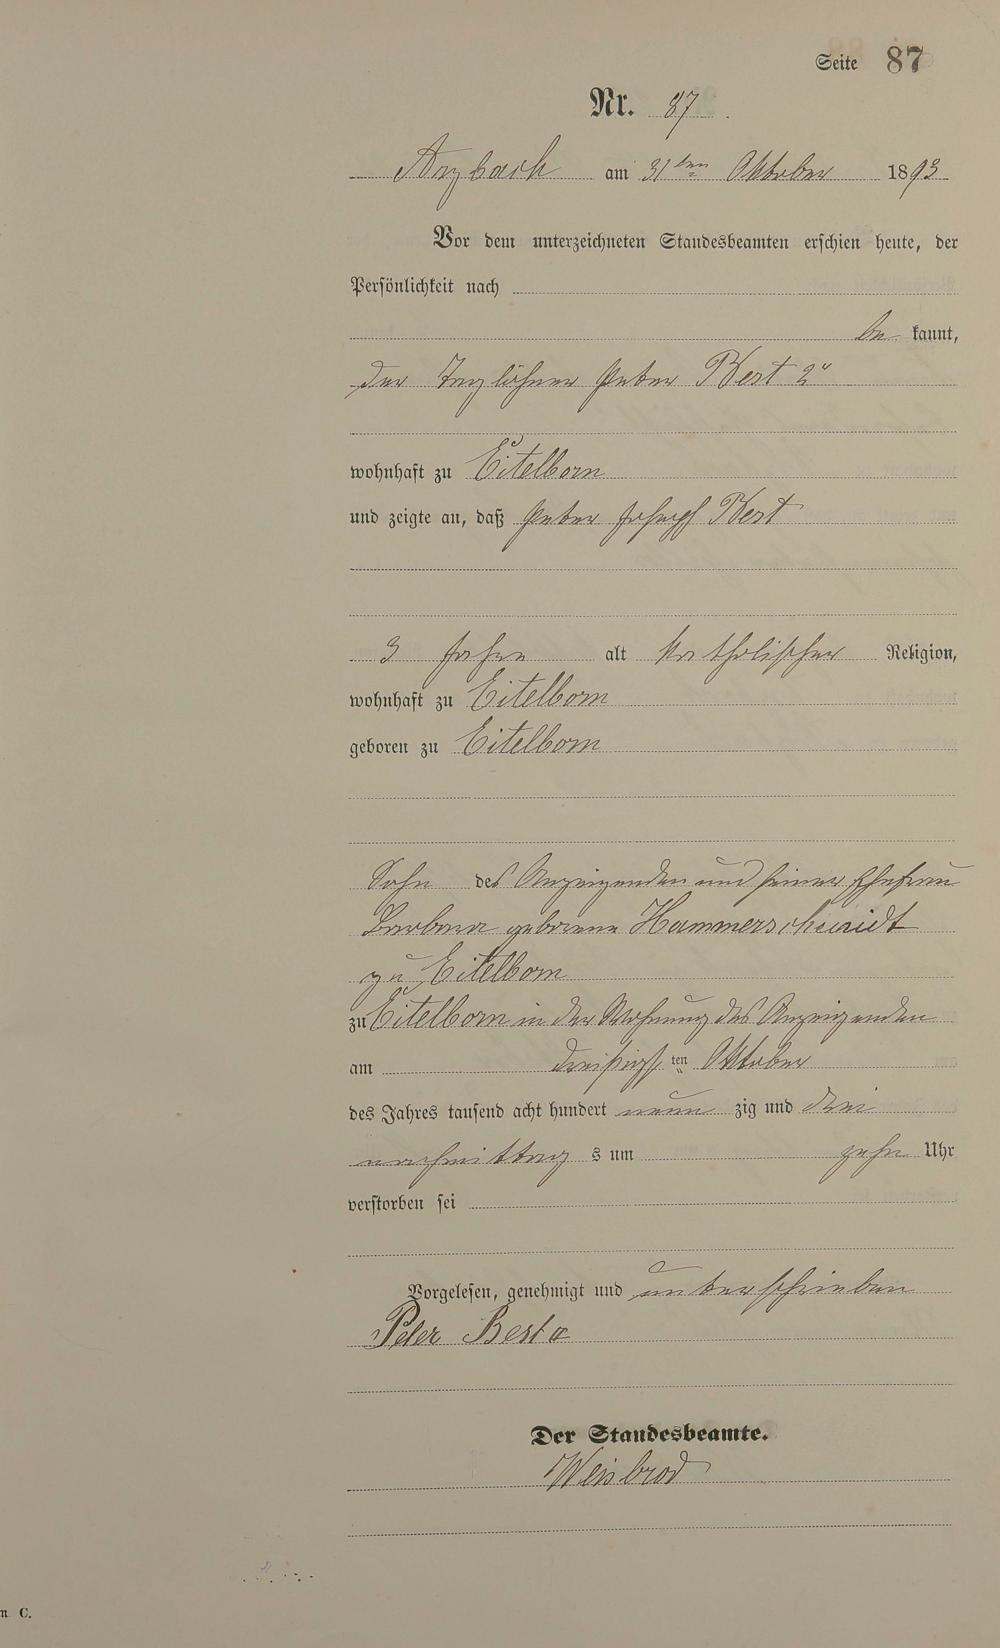 Seite 87
Nr. 87.
Arzbach am 31ten Oktober 1893
Vor dem unterzeichneten Standesbeamten erschien heute, der
Persönlichkeit nach
be kannt,
der Taglöhner Peter Best 2r
wohnhaft zu Eitelborn
und zeigte an, daß Peter Joseph Best
3 Jahre alt katholischer Religion,
wohnhaft zu Eitelborn
geboren zu Eitelborn
Sohn des Anzeigenden und seiner Ehefrau
Barbara geborene Hammerschmidt
zu Eitelborn
zu Eitelborn in der Wohnung des Anzeigenden
am dreißigsten Oktober
des Jahres tausend acht hundert neun zig und drei
nachmittag s um zehn Uhr
verstorben sei
Vorgelesen, genehmigt und unterschrieben
Peter Best
Der Standesbeamte.
Weisbrod
n C.